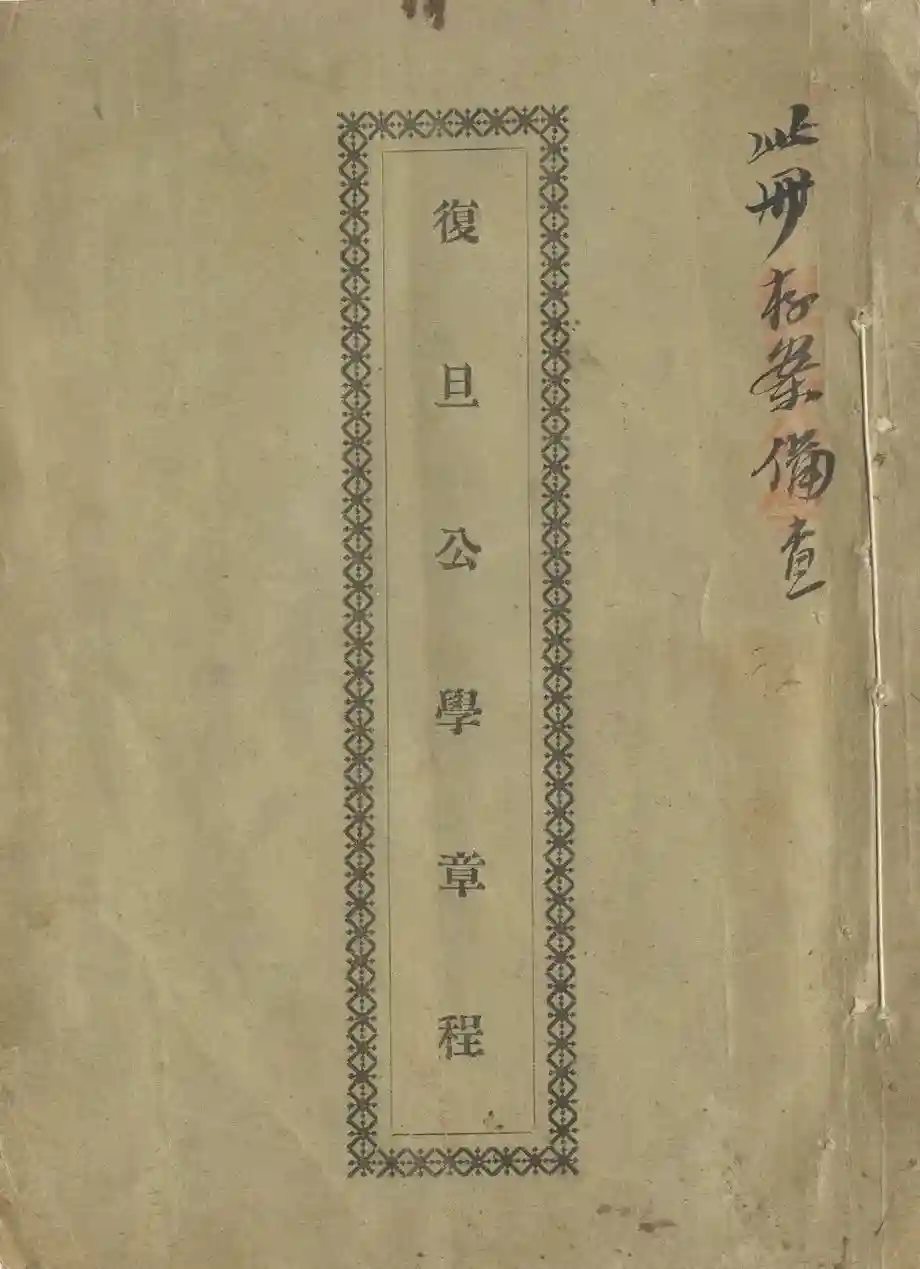 此冊存案備查
復旦公學章程